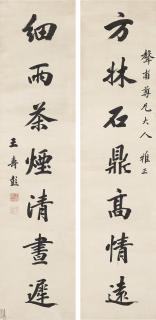 方床石鼎高情遠
聲甫尊兄大人雅正
細雨茶煙清晝遲
王壽彭